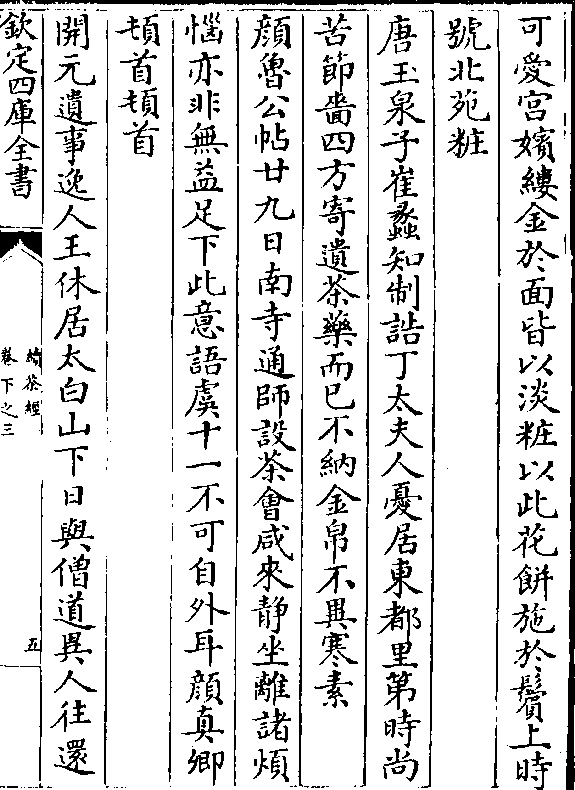 可愛宫嬪縷金於面皆以淡粧以此花餅施於鬢上時
號北苑粧
唐玉泉子崔蠡知制誥丁太夫人憂居東都里第時尚
苦節嗇四方寄遺茶藥而已不納金帛不異寒素
顔魯公帖廿九日南寺通師設茶會咸來静坐離諸煩
惱亦非無益足下此意語虞十一不可自外耳顔真卿
頓首頓首
開元遺事逸人王休居太白山下日與僧道異人往還
欽定四庫全書
續茶經
卷下之三
五